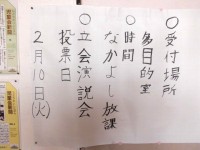 ○受付場所
多目的室
○時間
なかよし放課
○立会演説会
投票日
2月10日(火)